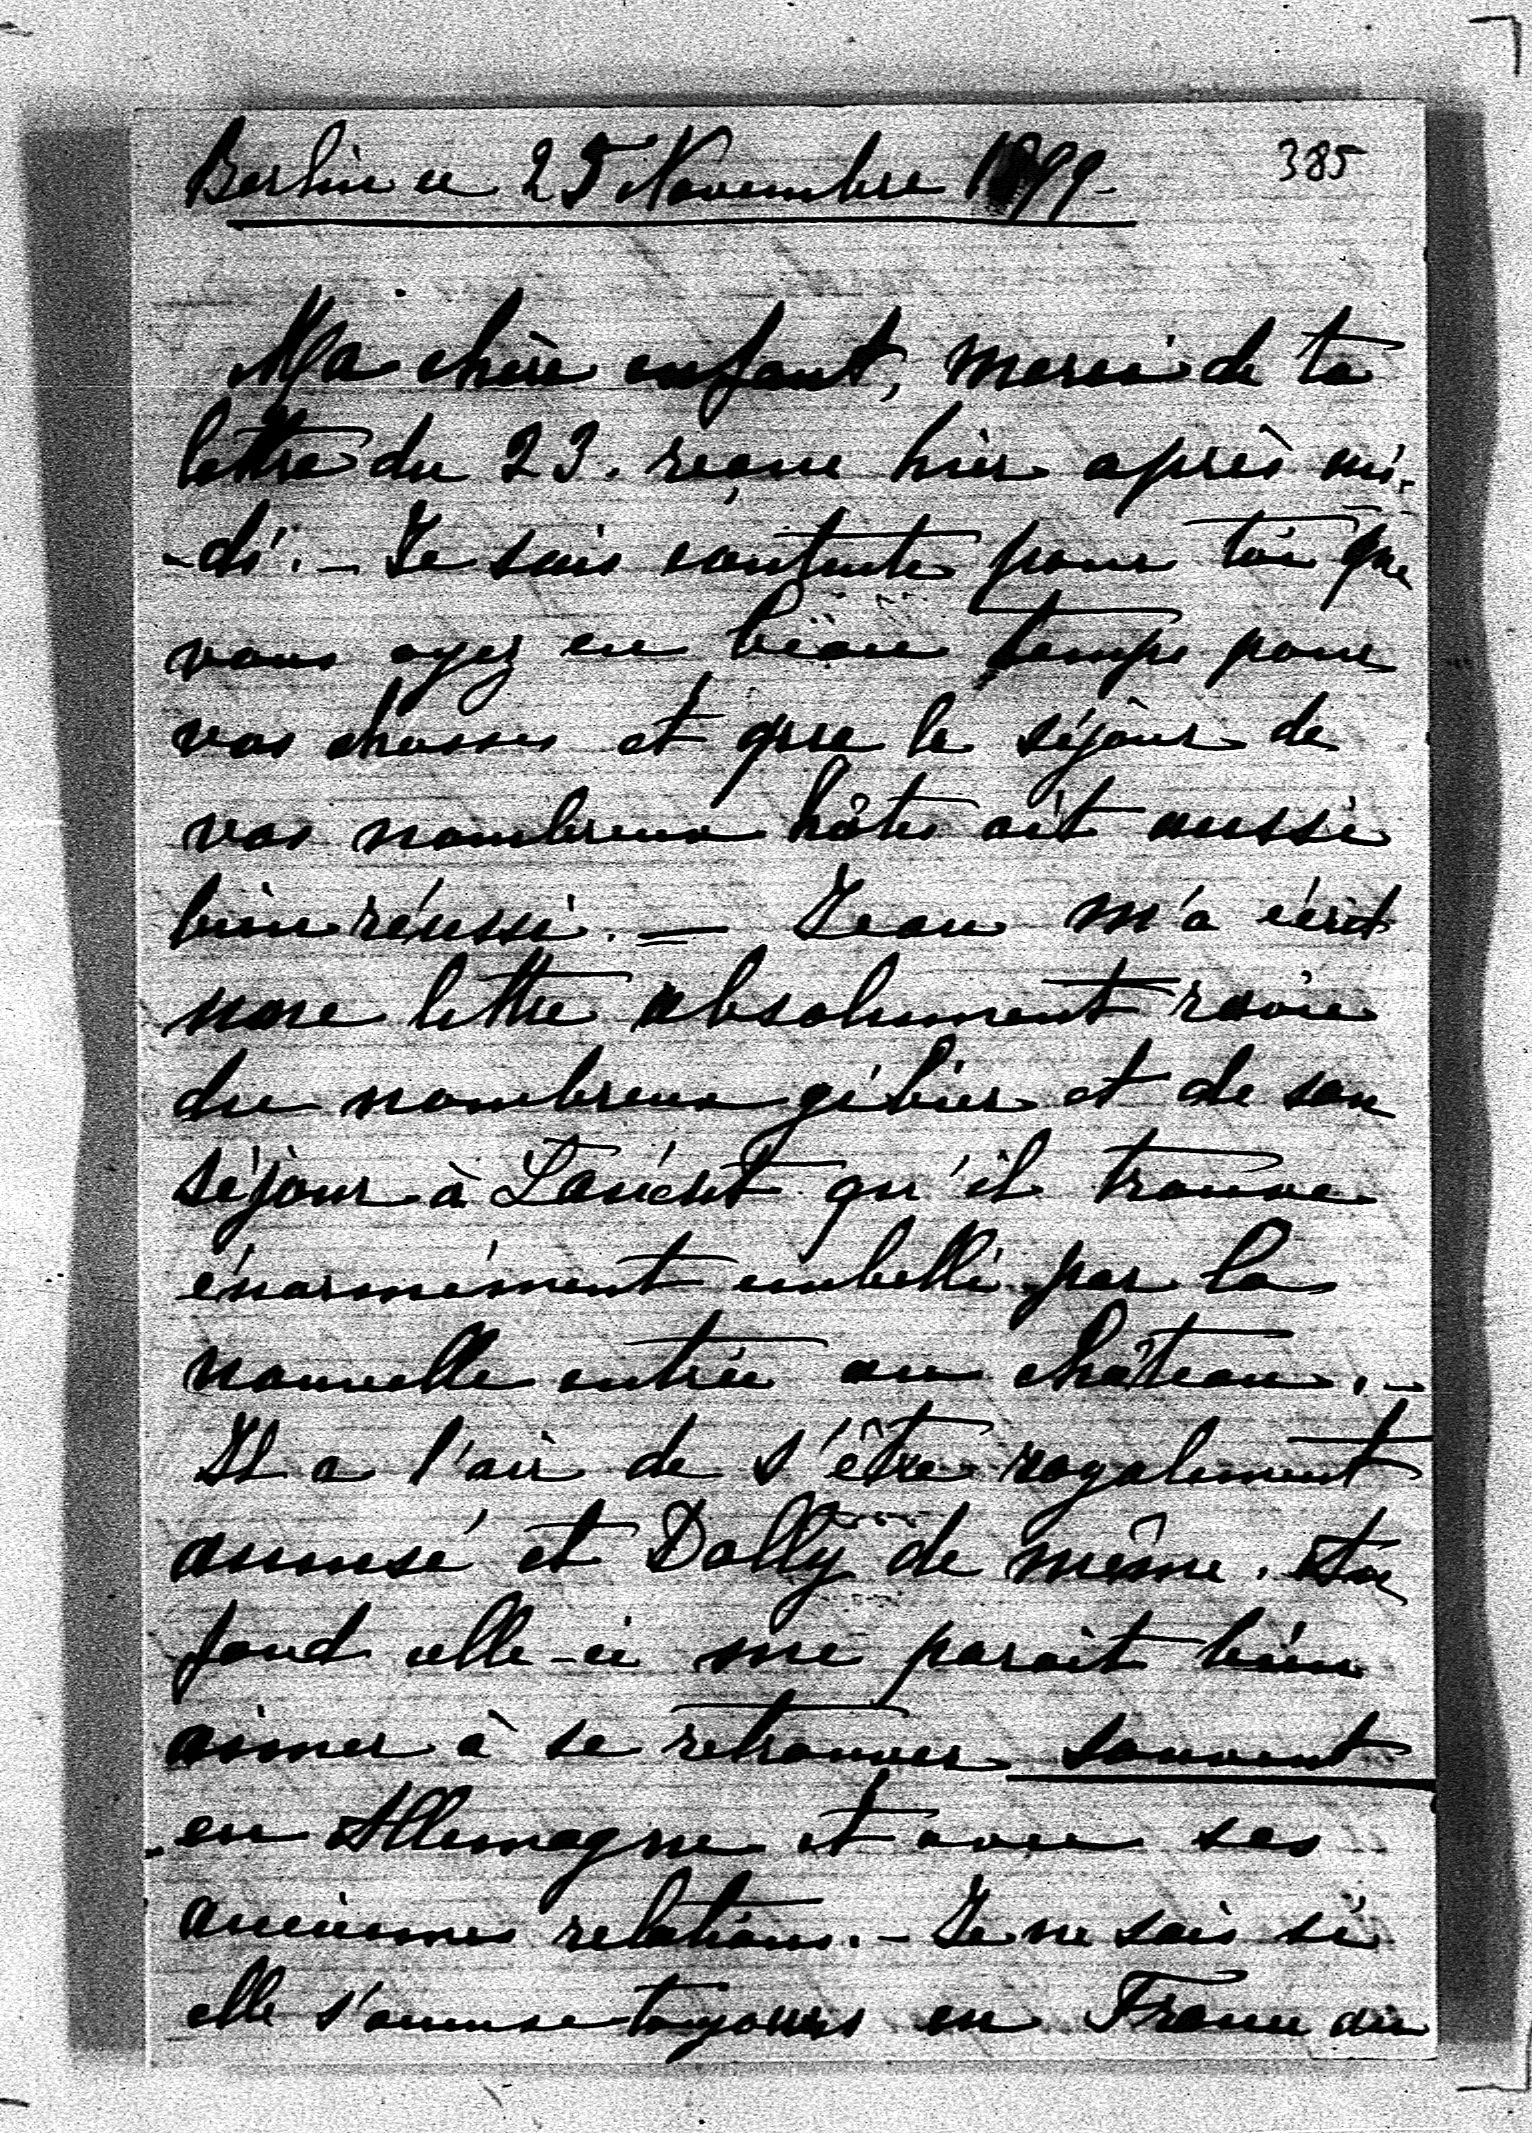 Berlin ce 25 Novembre 1899
385
Ma chère enfant, merci de ta
lettre du 23. reçue hier après mi-
-di. - Je suis contente pour toi que
vous ayez eu beau temps pour
vos chasses et que le séjour de
vos nombreux hôtes ait aussi
bien réussi. — Jean m'a écrit
une lettre absolument ravie
du nombreux gibier et de son
séjour à Lancut qu'il trouve
énormément embelli par la
nouvelle entrée au château. -
Il a l'air de s'être royalement
amusé et Dolly de même. Au
fond celle-ci me parait bien
aimer à se retrouver souvent
en Allemagne et avec ses
anciennes relations. - Je ne sais si
elle s'amuse toujours en France où